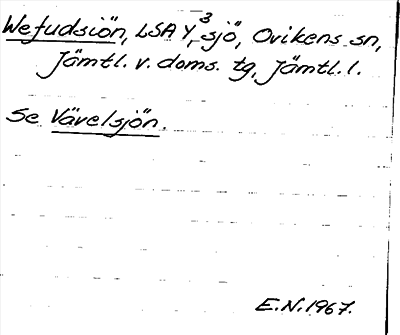 Wefudsiön, LSA Y³, sjö, Ovikens sn,
Jämtl. v. doms. tg, Jämtl. l.
Se Vävelsjön.
E.N. 1967.